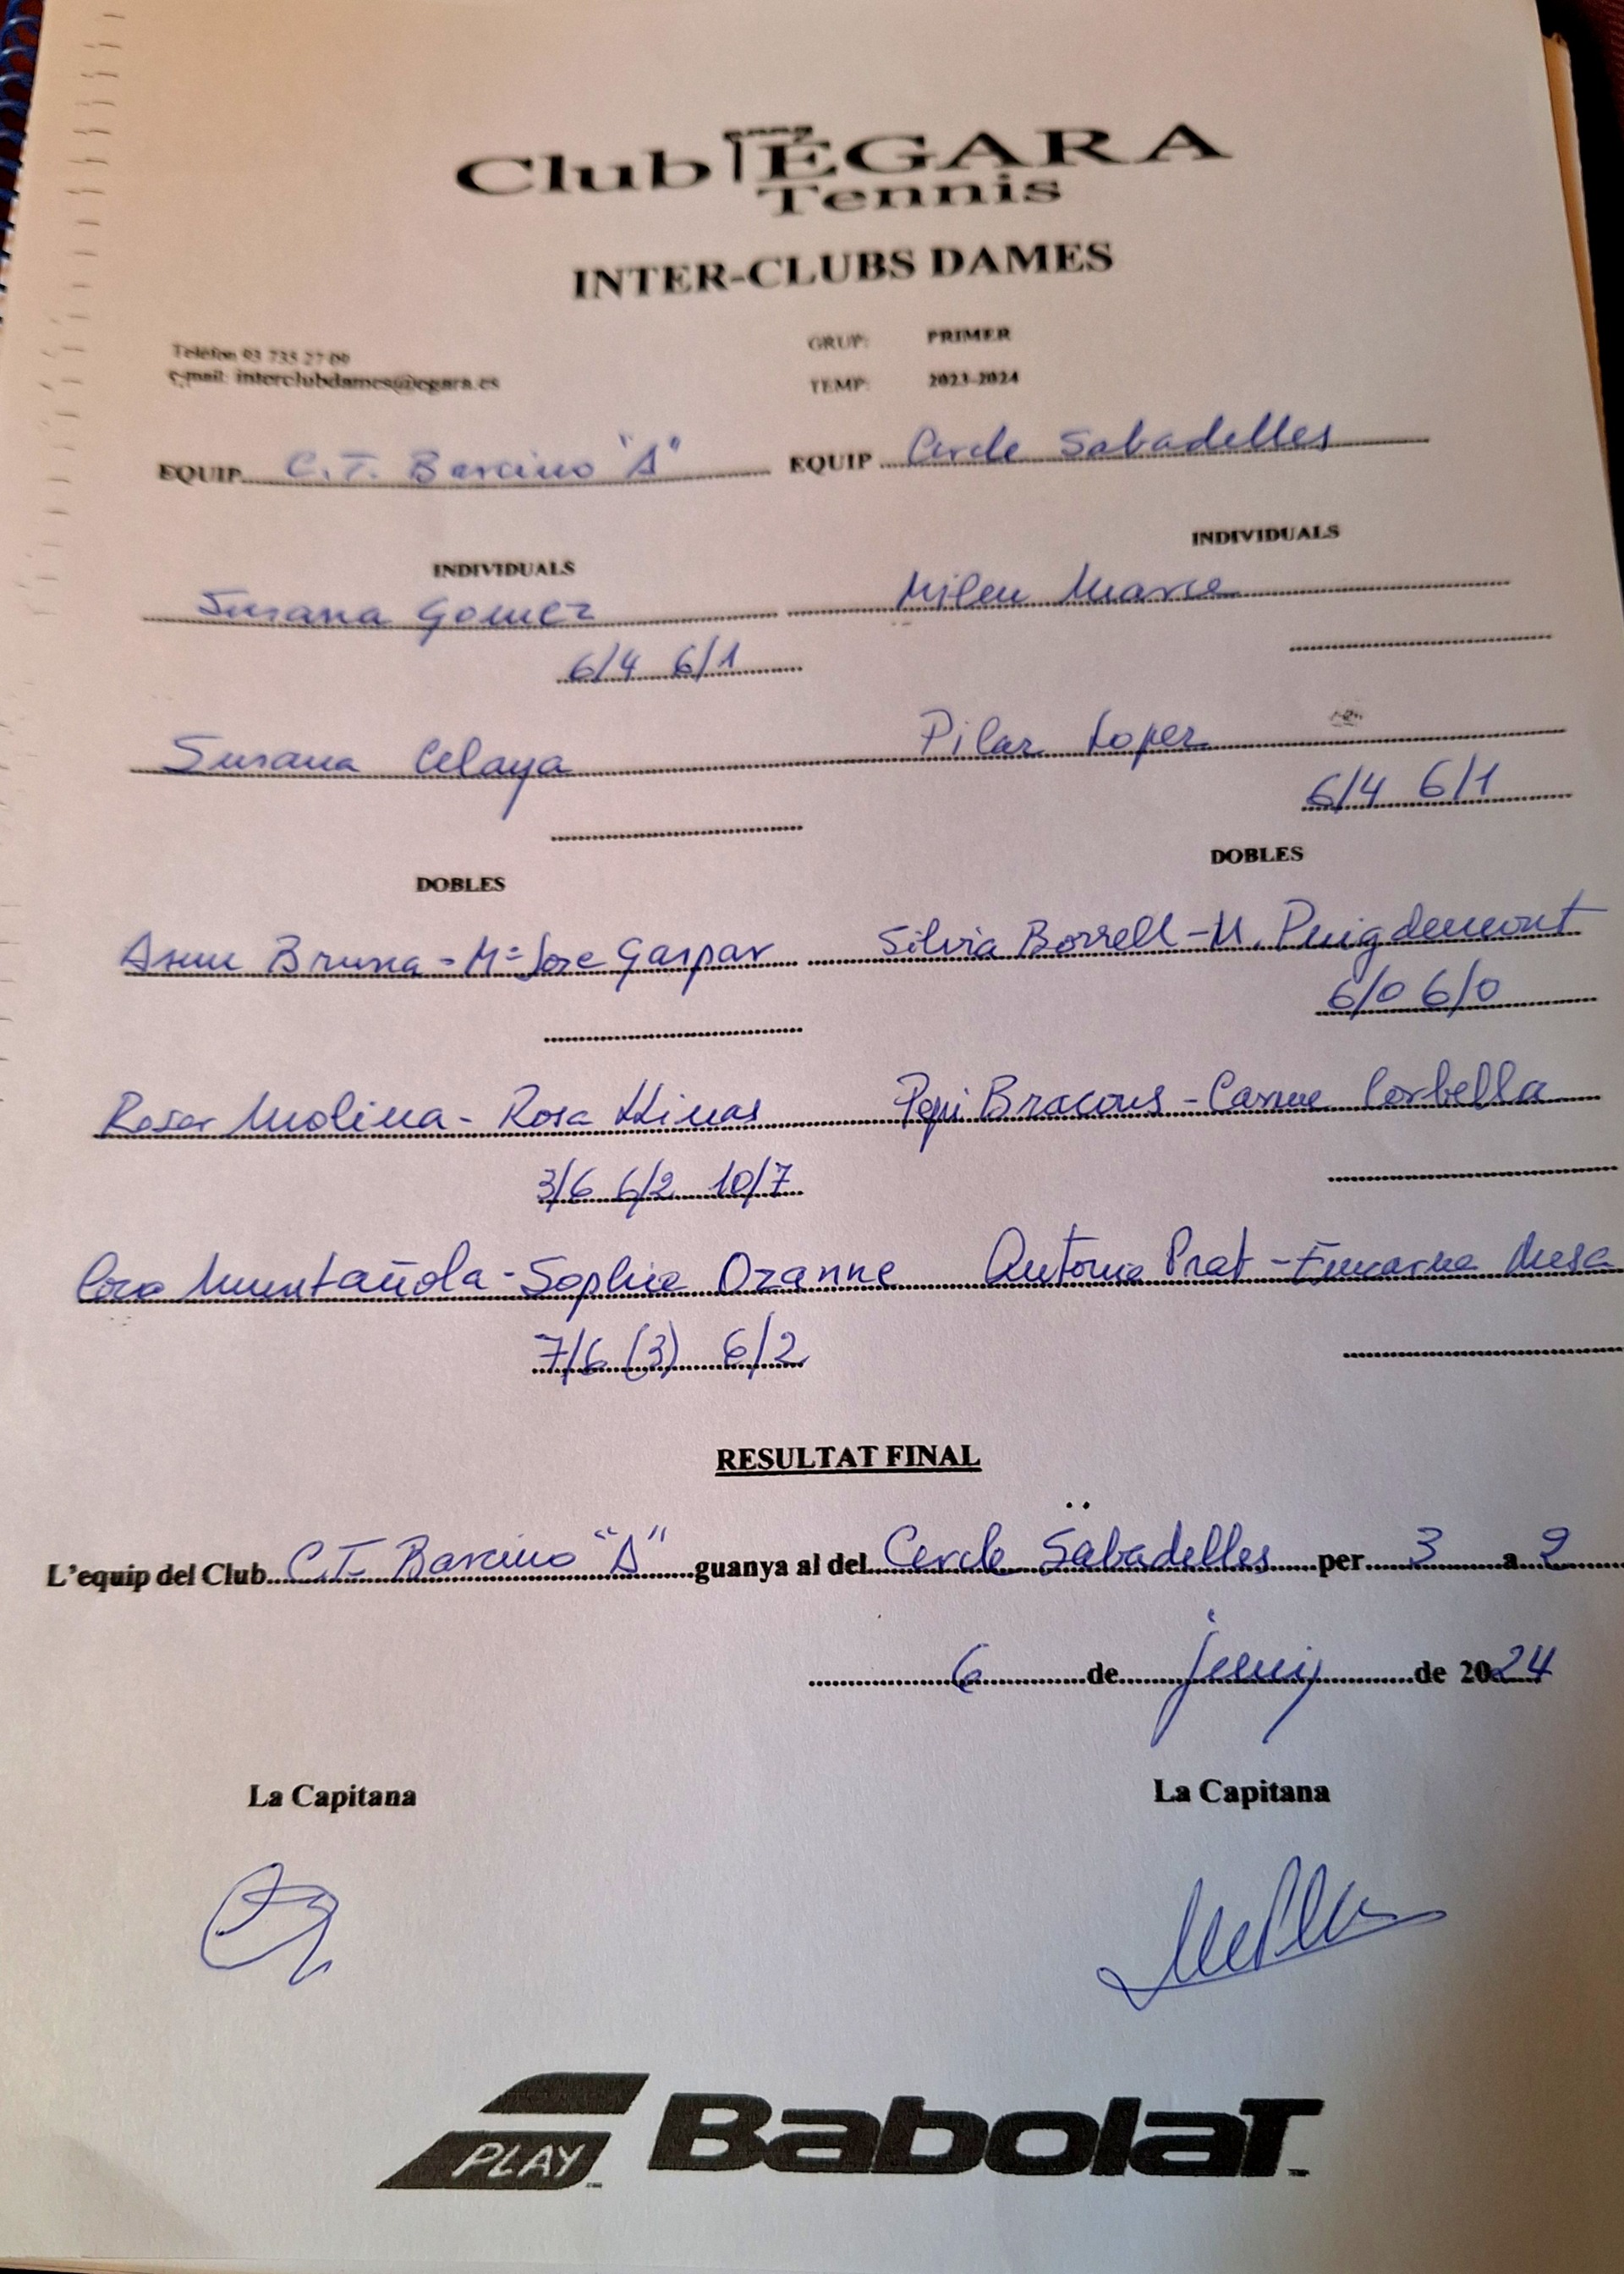 Club ÈGARA
Tennis
INTER-CLUBS DAMES
Telèfon 93 735 27 09
e-mail: interclubdames@egara.es
GRUP: PRIMER
TEMP: 2023-2024
EQUIP C.T. Barcino "A" EQUIP Cercle Sabadelles
INDIVIDUALS INDIVIDUALS
Susana Gomez Milen Marce
6/4 6/1
Susana Celaya Pilar Lopez
6/4 6/1
DOBLES DOBLES
Bruna - Mª Jose Gaspar Silvia Borrell - M. Puigdemont
6/0 6/0
Roser Molina - Rosa Llinas Pepi Bracons - Carme Corbella
3/6 6/2 10/7
Muntañola - Sophie Ozanne Antonia Prat - Encarna Mesa
7/6 (3) 6/2
RESULTAT FINAL
L'equip del Club C.T. Barcino "A" guanya al del Cercle Sabadelles per 3 a 2
6 de juny de 2024
La Capitana La Capitana
PLAY Babolat